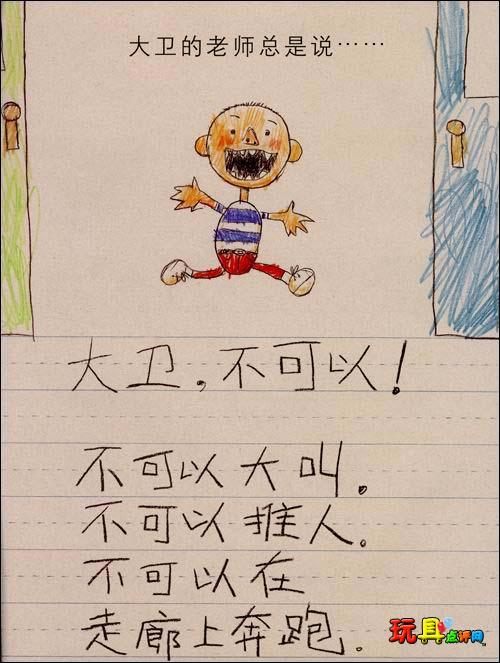 大卫的老师总是说……
大卫,不可以!
不可以大叫.
不可以推人.
不可以在
走廊上奔跑.
玩具点评网